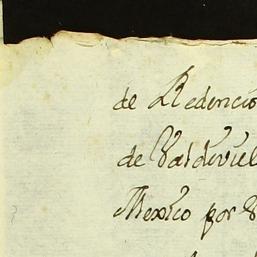 de Redencio
de Valdiviel
Mexico por